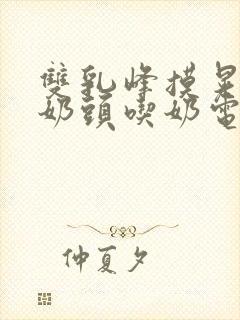 雙乳峰摸是
奶頭喫奶電
仲夏夕